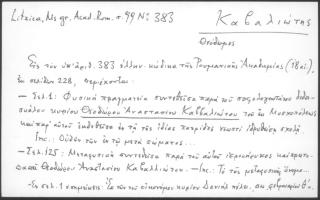 Litzica, Ms gr. Acad. Rom. σ. 99 Nº 383
Καβαλιώτης
Θεόδωρος
Εἰς τὸν ὑπ' ἀρ. 383 ἑλλην. κώδικα τῆς Ρουμανικῆς Ἀκαδημίας (18 αἰ.),
ἐκ σελίδων 228, περιέχονται:
– Σελ. 1: Φυσικὴ πραγματεία συντεθεῖσα παρὰ τοῦ σοφολογιωτάτου διδα-
σκάλου κυρίου Θεοδώρου Ἀναστασίου Καβαλλιώτου τοῦ ἐκ Μοσχοπόλεως
καὶ παρ' αὐτοῦ ἐκδοθεῖσα ἐν τῇ τῆς ἰδίας πατρίδος νεωστὶ ἱδρυθείσῃ σχολῇ
Inc.: Οὐδὲν τῶν ἐν τῷ μετὰ σώματος...
– Σελ. 125: Μεταφυσικὴ συντεθεῖσα παρὰ τοῦ αὐτοῦ ἱεροκήρυκος καὶ πρωτο-
παπᾶ Θεοδώρου Ἀναστασίου Καβαλλιώτου. – Inc.: Τὸ τῆς μεταφυσικῆς ὄνομα...
– Ἐν σελ. 1 σημείωσις: Ἐκ τῶν τοῦ οἰκονόμου κυρίου Δανιὴλ πέλω,